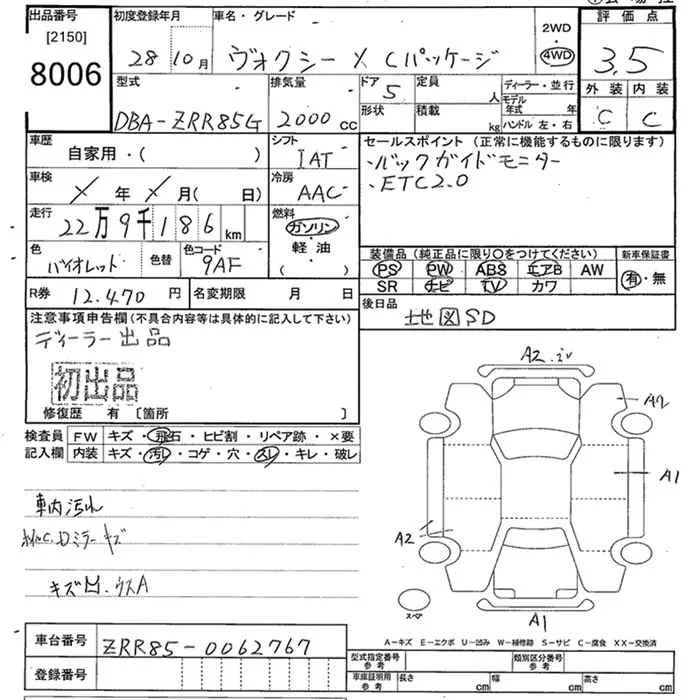 出品番号
[2150]
8006
初度登録年月
28 10月
車名・グレード
ヴォクシー X Cパッケージ
2WD
4WD
評価点
3.5
外装 内装
C C
型式
DBA-ZRR85G
排気量
2000 cc
ドア 5
形状
定員 人
積載 kg
ディーラー・並行
モデル年式 年
ハンドル 左・右
車歴
自家用・( )
シフト
IAT
車検
X 年 X 月( 日)
冷房
AAC
走行
22万9千186 km
燃料
ガソリン
軽油
( ・ )
色
バイオレット
色替
色コード
9AF
R券 12.470 円
名変期限 月 日
セールスポイント (正常に機能するものに限ります)
・バックガイドモニター
・ETC2.0
装備品 (純正品に限り〇をつけてください)
PS PW ABS エアB AW
SR ナビ TV カワ
新車保証書
有・無
後日品
地図SD
注意事項申告欄(不具合内容等は具体的に記入して下さい)
ディーラー出品
初出品
修復歴 有 [箇所 ]
検査員
記入欄
FW キズ・飛石・ヒビ割・リペア跡・×要
内装 キズ・汚レ・コゲ・穴・スレ・キレ・破レ
車内汚れ
キズ凹.ウスA
A2
A2
A1
A2
A1
スペア
A-キズ E-エクボ U-凹み W-補修跡 S-サビ C-腐食 XX-交換済
車台番号 ZRR85-0062767
登録番号
型式指定番号
参考
類別区分番号
参考
車庫証明用
参考
長さ cm 幅 cm 高さ cm